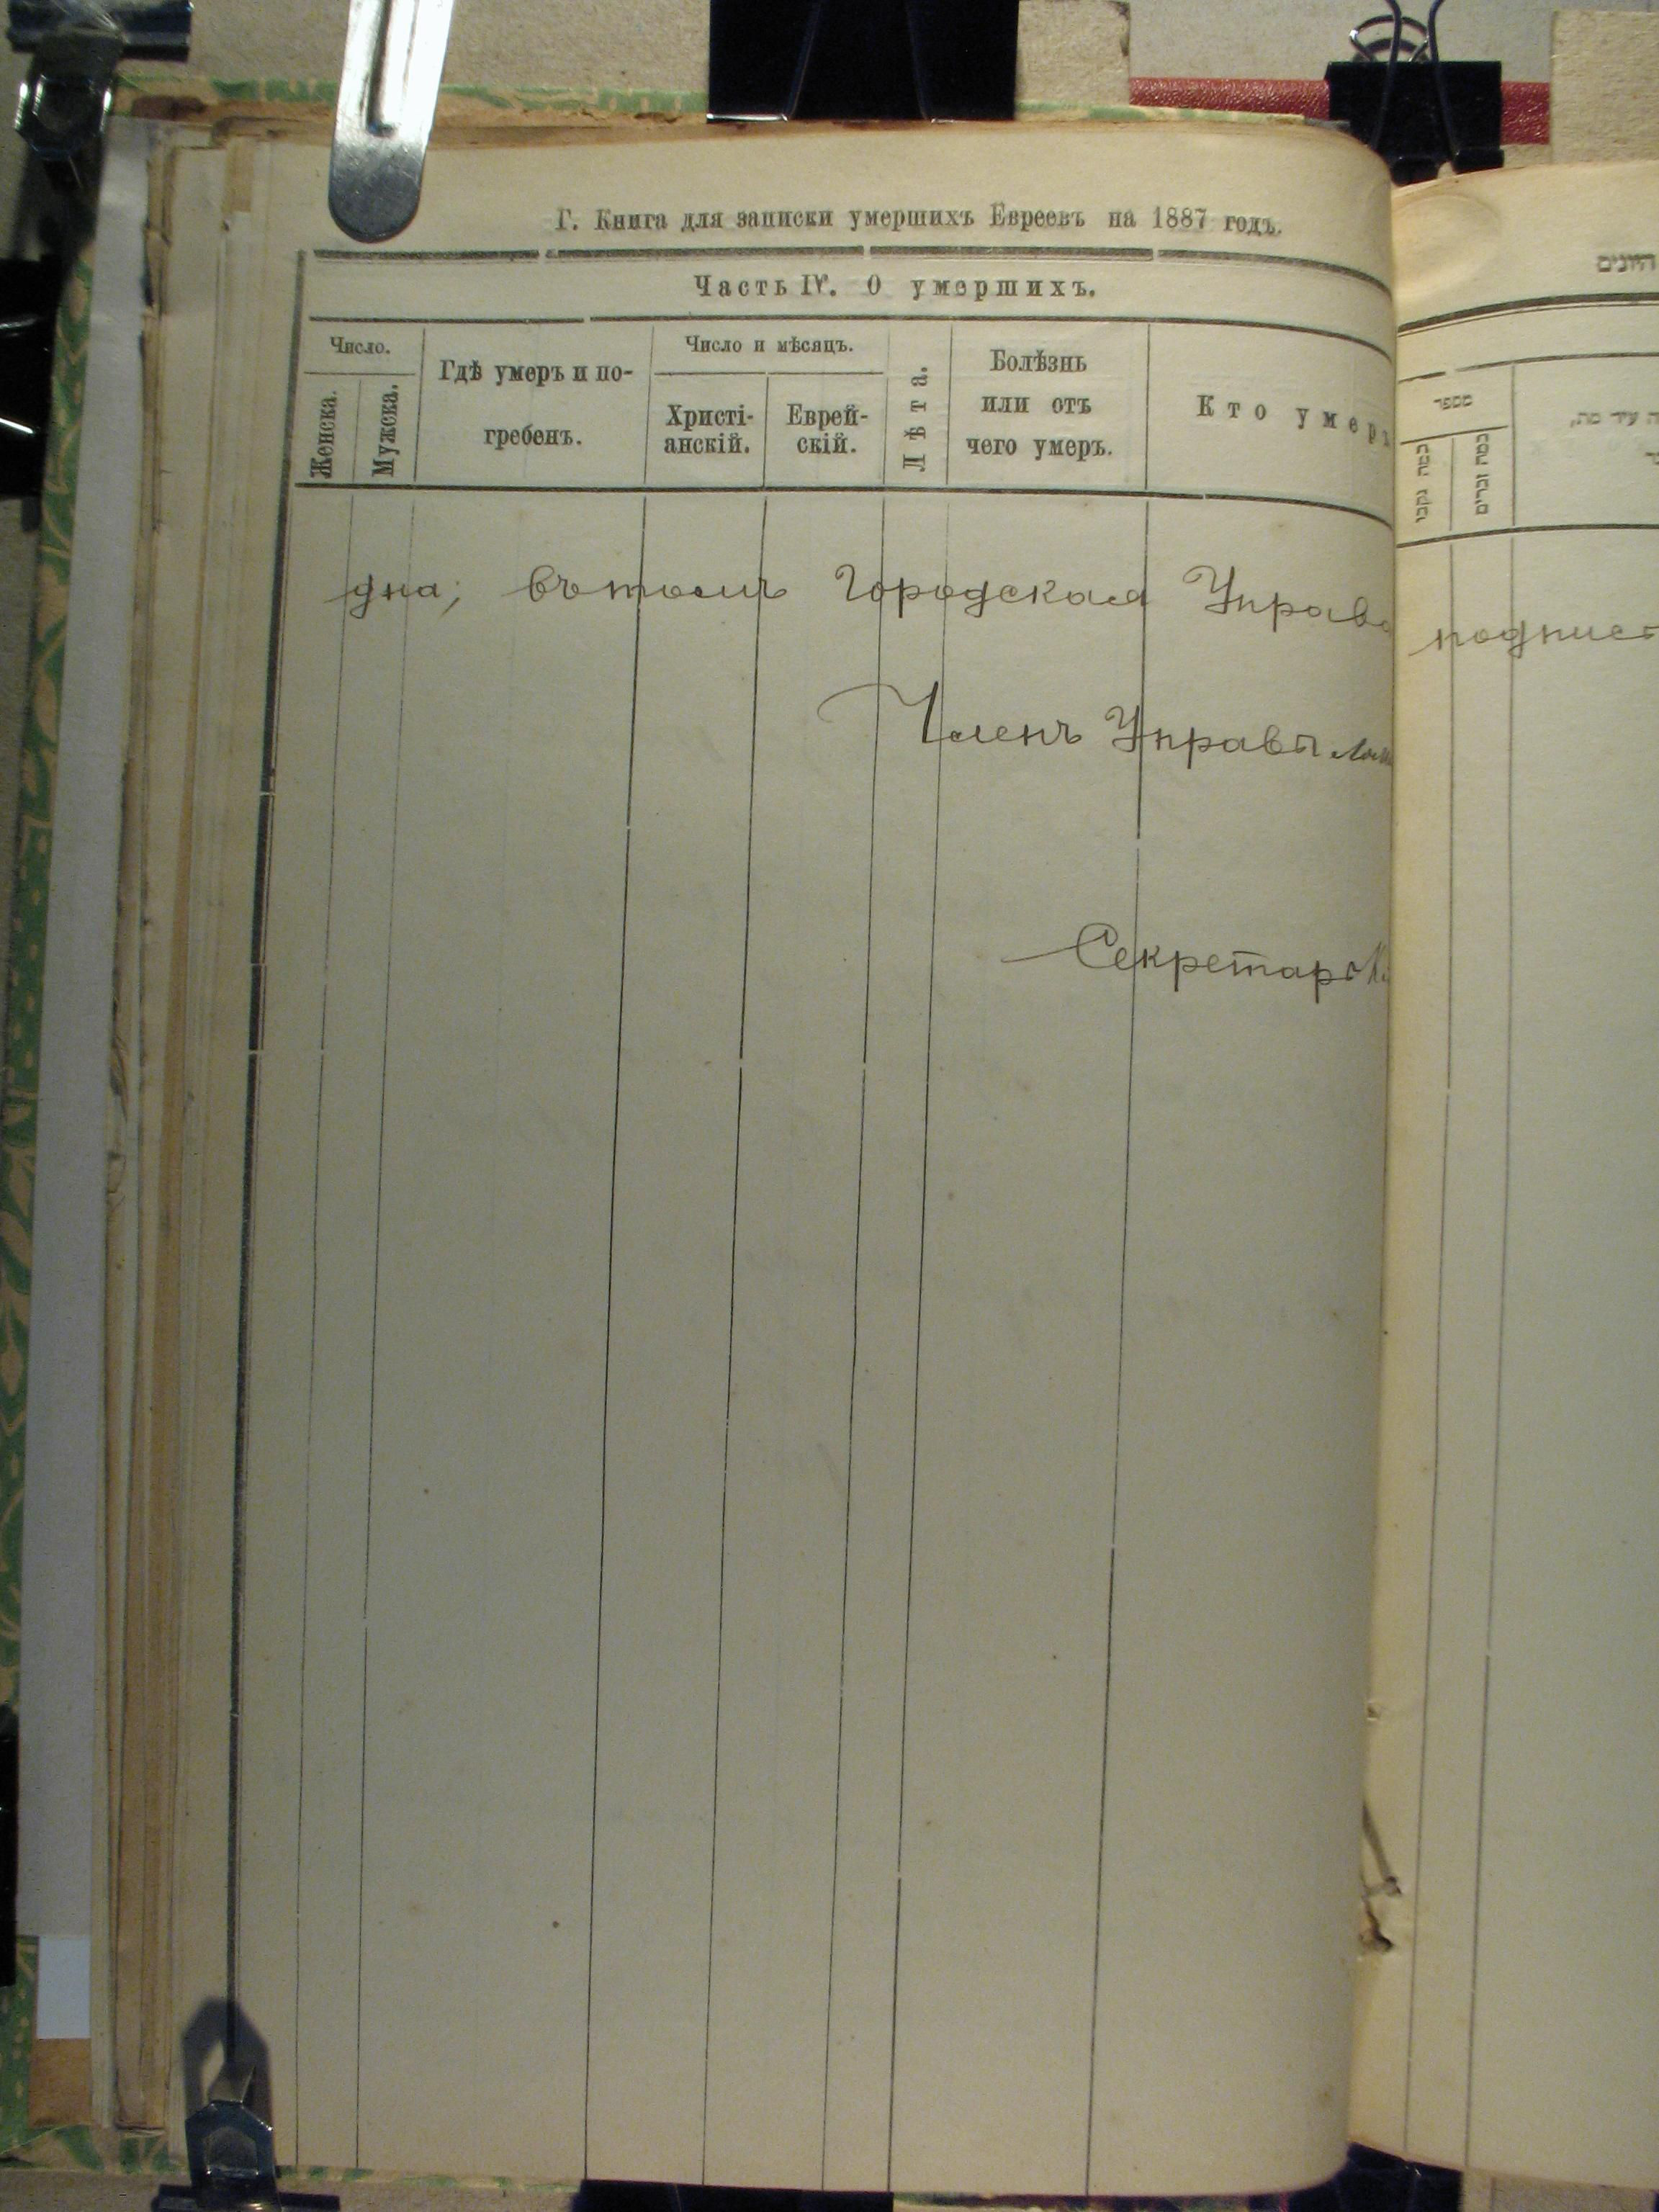 Г. Книга для записки умершихъ Евреевъ на 1887 годъ.
Часть IV. О умершихъ.
Число.
Женска.
Мужска.
Гдѣ умеръ и по-
гребенъ.
Число и мѣсяцъ.
Христі-
анскій.
Еврей-
скій.
Лѣта.
Болѣзнь
или отъ
чего умеръ.
Кто умеръ
дна; въ томъ Городская Управа
Членъ Управы
Секретарь
מספר
כמה זכרים
подпис